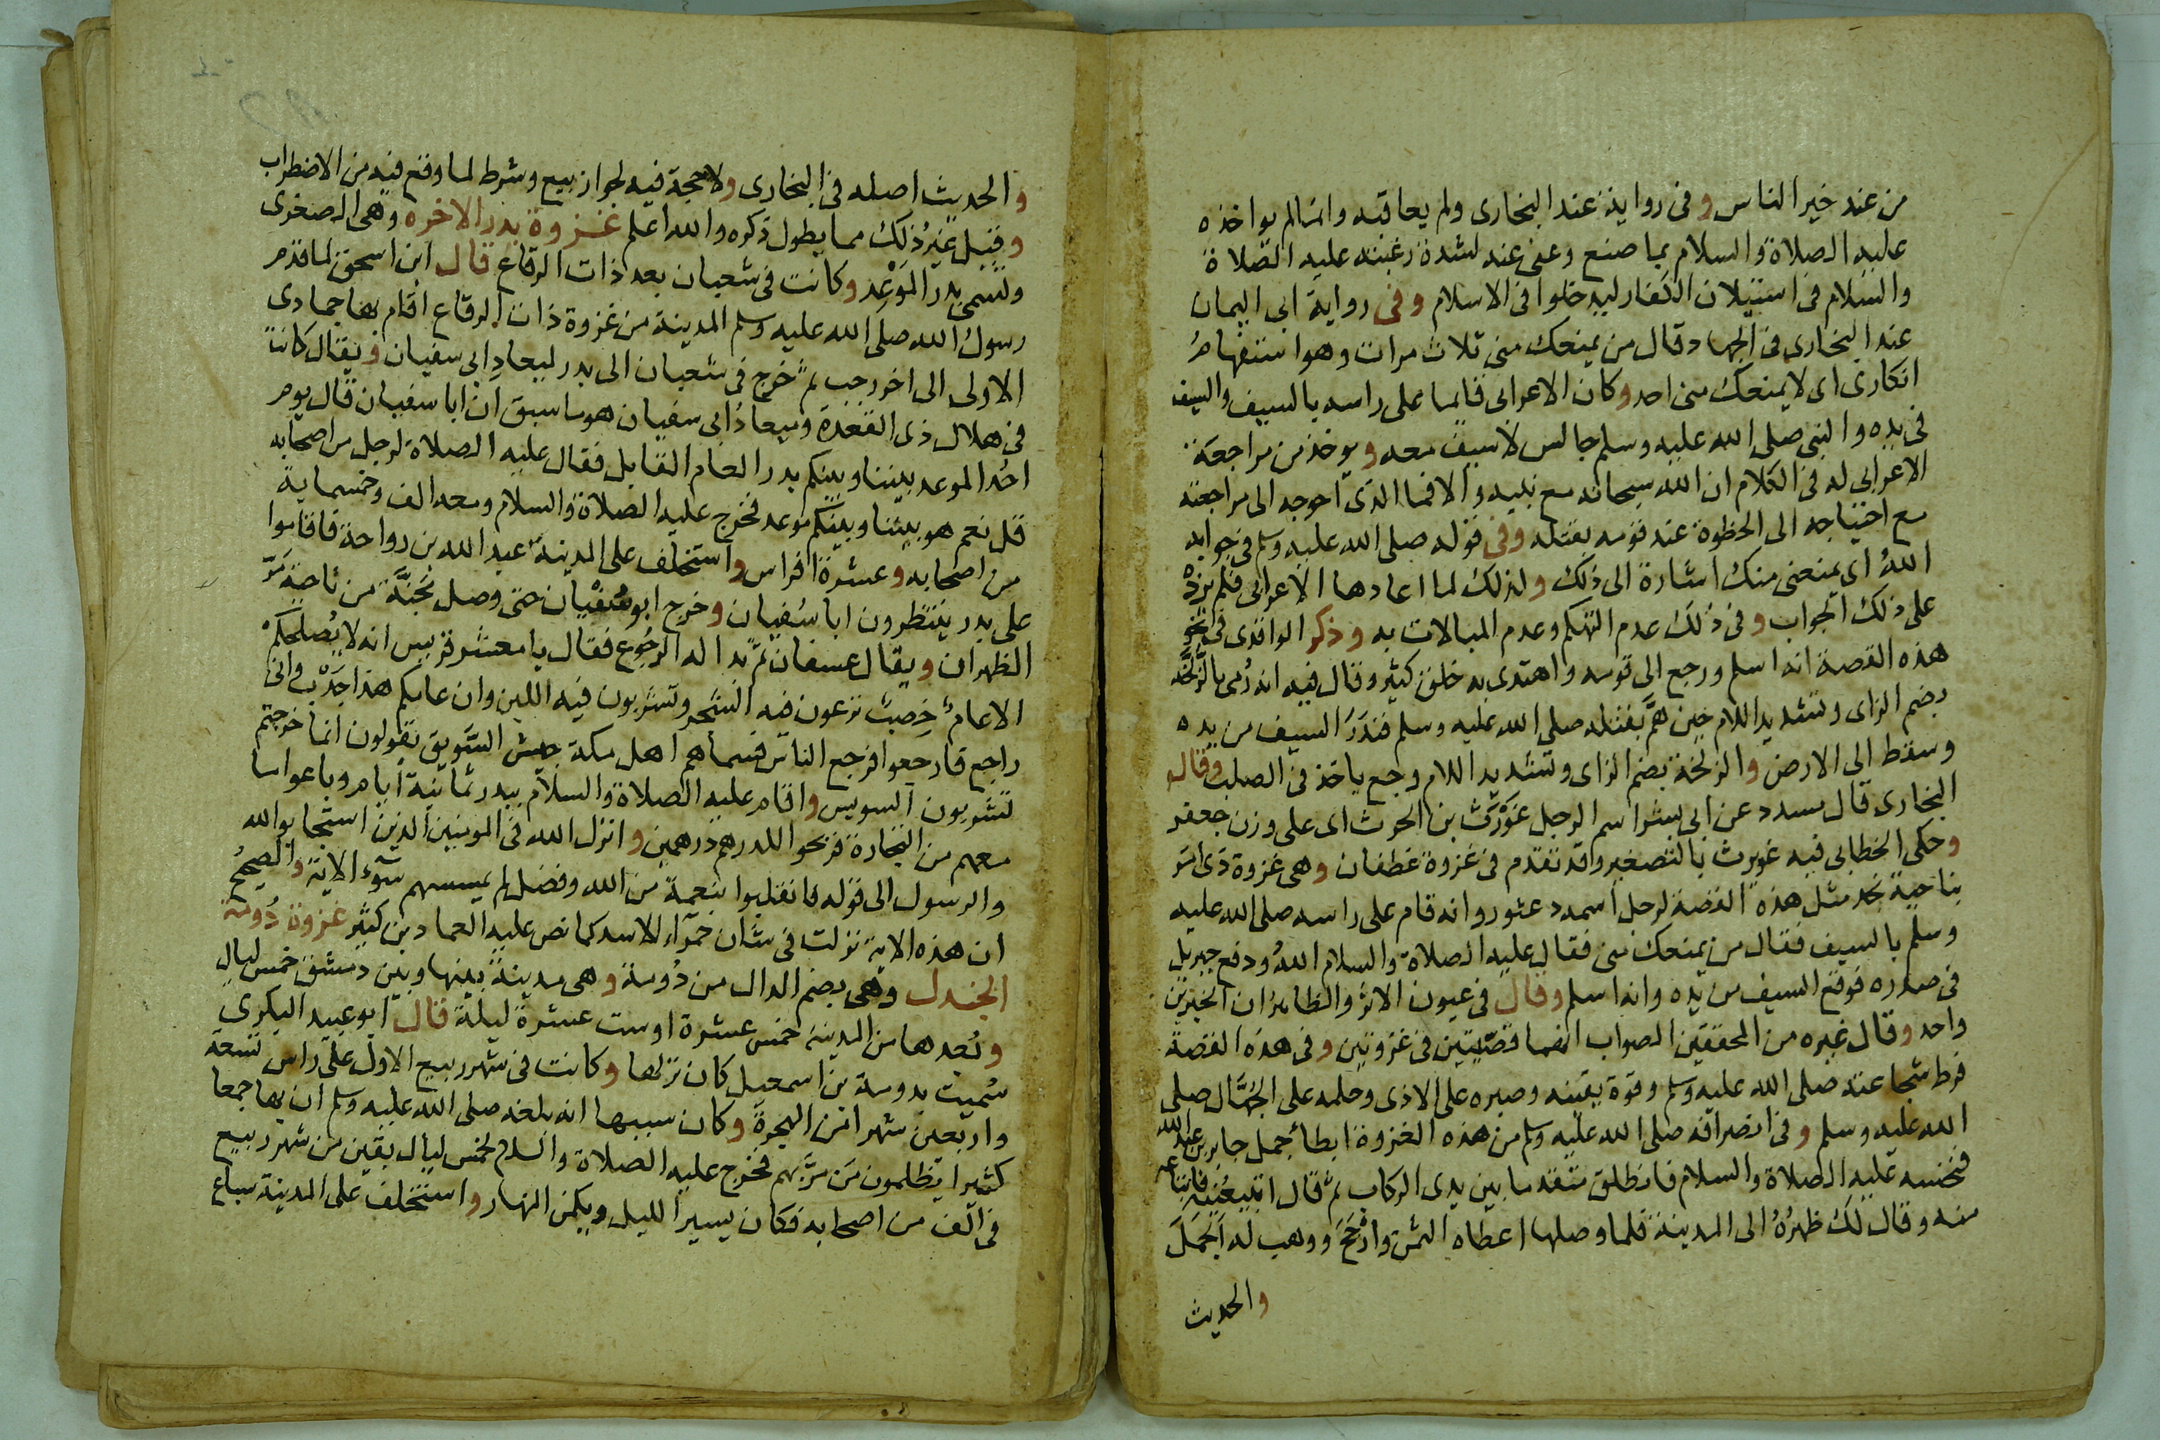 من عند خير الناس وفى رواية عند البخارى ولم يعاقبه وانما لم يواخذه
عليه الصلاة والسلام بما صنع وعفى عنه لشدة رغبته عليه الصلاة
والسلام فى استيلان الكفار ليدخلوا فى الاسلام وفى رواية ابى اليمان
عند البخارى فى الجهاد قال من يمنعك منى ثلاث مرات وهو استفهام
انكارى اى لا يمنعك منى احد وكان الاعرابى قايما على راسه بالسيف والسيف
فى يده والنبى صلى الله عليه وسلم جالس لا سيف معه ويوخذ من مراجعة
الاعرابى له فى الكلام ان الله سبحانه منع نبيه والا فما الذى احوجه الى مراجعته
مع احتياجه الى الحظوة عند قومه بقتله وفى قوله صلى الله عليه وسلم فى جوابه
الله اى يمنعنى منك اشارة الى ذلك ولذلك لما اعادها الاعرابى فلم يزده
على ذلك الجواب وفى ذلك عدم التهكم وعدم المبالات به وذكر الواقدى فى نحو
هذه القصة انه اسلم ورجع الى قومه واهتدى به خلق كثير وقال فيه انه رمى بالزلخة
بضم الزاى وتشديد اللام حين هم بقتله صلى الله عليه وسلم فندر السيف من يده
وسقط الى الارض والزلخة بضم الزاى وتشديد اللام وجع ياخذ فى الصلب وقال
البخارى قال مسدد عن ابى بشر اسم الرجل غورث بن الحرث اى على وزن جعفر
وحكى الخطابى فيه غويرث بالتصغير وقد تقدم فى غزوة غطفان وهى غزوة ذى امر
بناحية نجد مثل هذه القصة لرجل اسمه دعثور وانه قام على راسه صلى الله عليه
وسلم بالسيف فقال من يمنعك منى فقال عليه الصلاة والسلام الله ودفع جبريل
فى صدره فوقع السيف من يده وانه اسلم وقال فى عيون الاثر والظاهر ان الخبرين
واحد وقال غيره من المحققين الصواب انهما قصتين فى غزوتين وفى هذه القصة
فرط شجاعته صلى الله عليه وسلم وقوة يقينه وصبره على الاذى وحلمه على الجهال صلى
الله عليه وسلم وفى انصرافه صلى الله عليه وسلم من هذه الغزوة ابطا جمل جابر بن عبد الله
فنخسه عليه الصلاة والسلام فانطلق متقدما بين يدى الركاب ثم قال اتبيعنيه فابتاعه
منه وقال لك ظهره الى المدينة فلما وصلها اعطاه الثمن وارجح ووهب له الجمل
والحديث
والحديث اصله فى البخارى ولا حجة فيه لجواز بيع وشرط لما وقع فيه من الاضطراب
وقيل غير ذلك مما يطول ذكره والله اعلم غزوة بدر الاخره وهى الصغرى
وتسمى بدر الموعد وكانت فى شعبان بعد ذات الرقاع قال ابن اسحق لما قدم
رسول الله صلى الله عليه وسلم المدينة من غزوة ذات الرقاع اقام بها جمادى
الاولى الى اخر رجب ثم خرج فى شعبان الى بدر لميعاد ابى سفيان ويقال كانت
فى هلال ذى القعدة وميعاد ابى سفيان هو ما سبق ان ابا سفيان قال يوم
احد الموعد بيننا وبينكم بدر العام القابل فقال عليه الصلاة لرجل من اصحابه
قل نعم هو بيننا وبينكم موعد فخرج عليه الصلاة والسلام ومعه الف وخمسماية
من اصحابه وعشرة افراس واستخلف على المدينة عبد الله بن رواحة فاقاموا
على بدر ينتظرون ابا سفيان وخرج ابو سفيان حتى وصل مجنة من ناحية مر
الظهران ويقال عسفان ثم بدا له الرجوع فقال يا معشر قريش انه لا يصلحكم
الا عام خصب ترعون فيه الشجر وتشربون فيه اللبن وان عامكم هذا جدب وانى
راجع فارجعوا فرجع الناس فسماهم اهل مكة جيش السويق يقولون انما خرجتم
تشربون السويس واقام عليه الصلاة والسلام ببدر ثمانية ايام وباعوا ما
معهم من التجارة فربحوا الدرهم درهمين وانزل الله فى المومنين الذين استجابوا لله
والرسول الى قوله فانقلبوا بنعمة من الله وفضل لم يمسسهم سوء الاية والصحيح
ان هذه الاية نزلت فى شان حمراء الاسد كما نص عليه العماد بن كثير غزوة دومة
الجندل وهى بضم الدال من دومة وهى مدينة بينها وبين دمشق خمس ليال
وبعدها من المدينة خمس عشرة او ست عشرة ليلة قال ابو عبيد البكرى
سميت بدومة بن اسمعيل كان نزلها وكانت فى شهر ربيع الاول على راس تسعة
واربعين شهرا من الهجرة وكان سببها انه بلغه صلى الله عليه وسلم ان بها جمعا
كثيرا يظلمون من مر بهم فخرج عليه الصلاة والسلام لخمس ليال بقين من شهر ربيع
فى الف من اصحابه فكان يسير الليل ويكمن النهار واستخلف على المدينة سباع